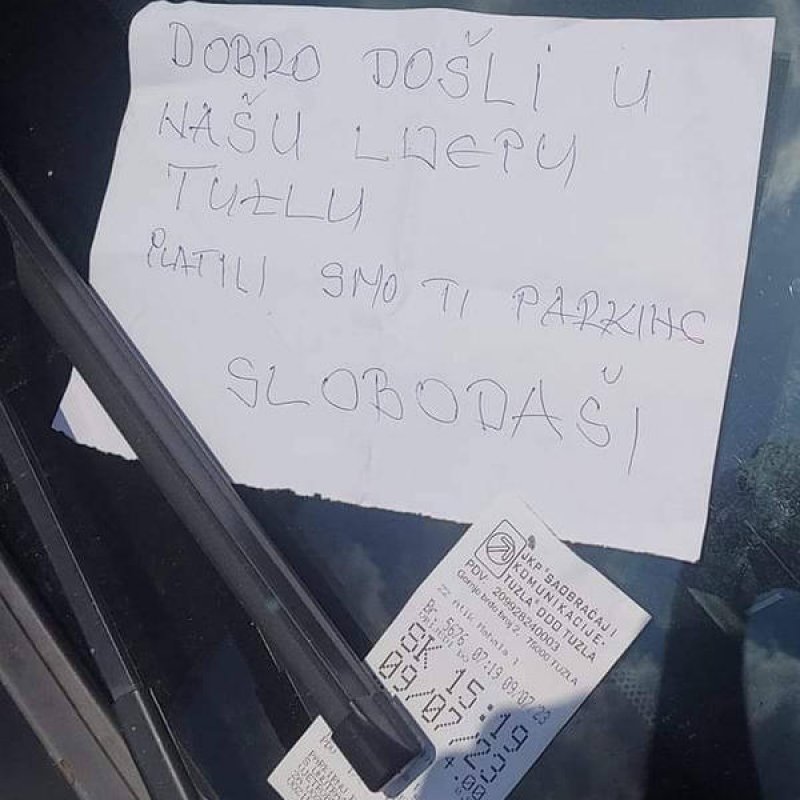 DOBRO DOŠLI U
NAŠU LIJEPU
TUZLU
PLATILI SMO TI PARKING
SLOBODAŠI
JKP "SAOBRAĆAJ I
KOMUNIKACIJE-
TUZLA" DOO TUZLA
PDV: 209926240003
Gornje brdo broj 2, 75000 TUZLA
ZZ Atik Mahala 1
Br. 5676 07:19 09/07/23
SK 15:19
09/07/23
4.00
PDV